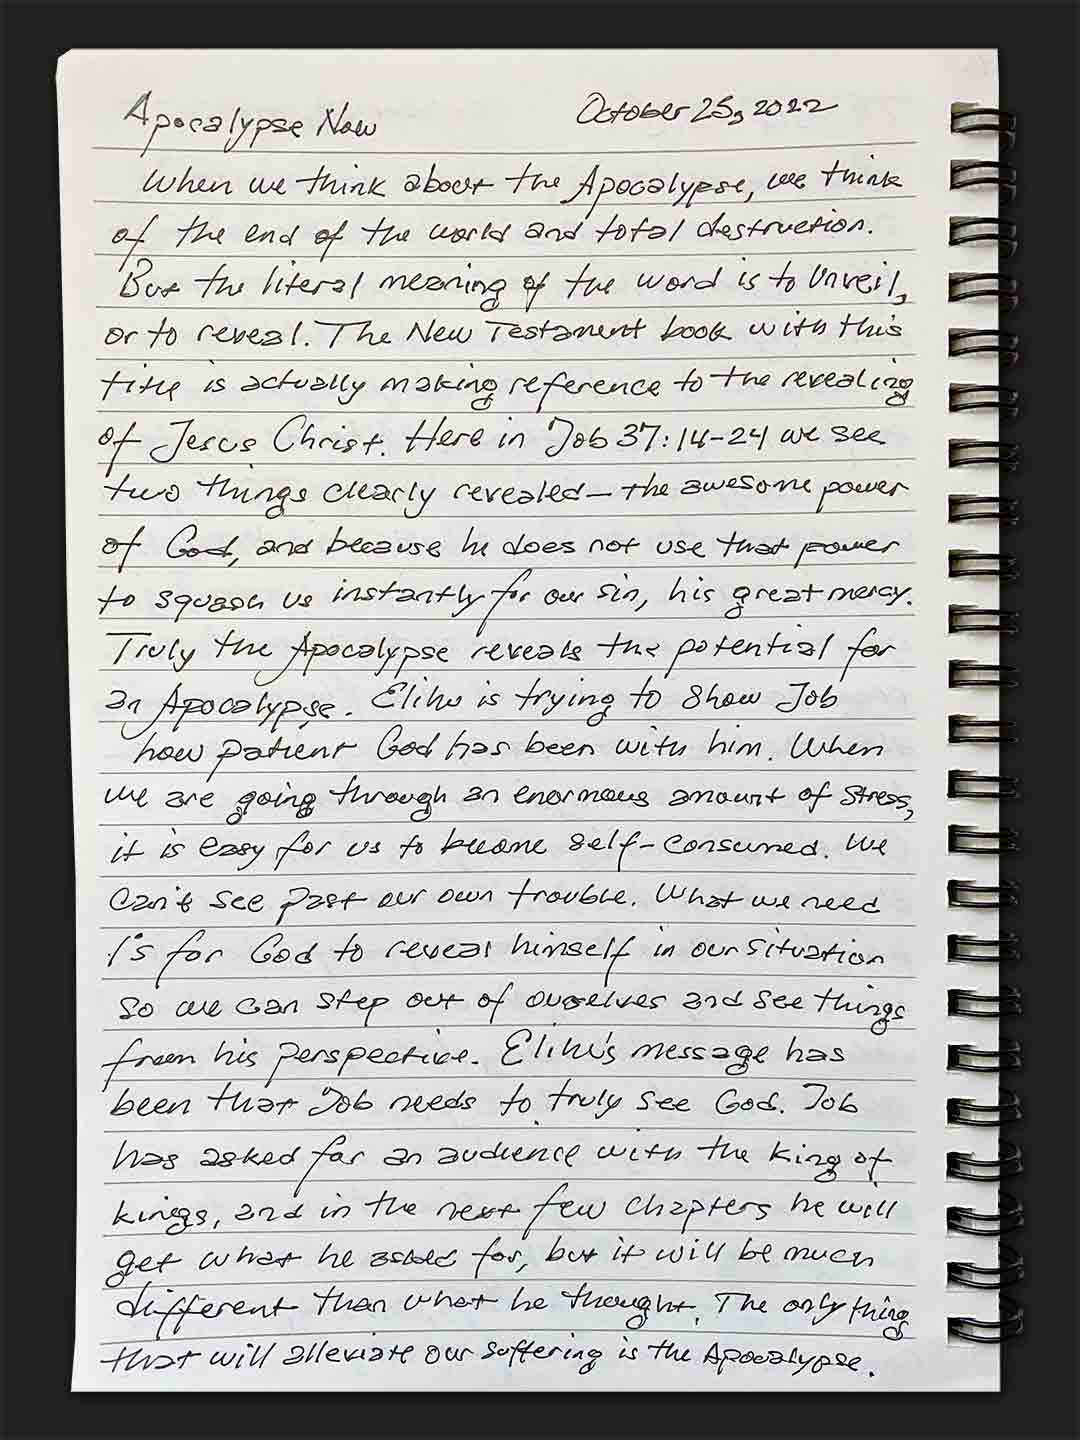 Apocalypse Now October 25, 2022
When we think about the Apocalypse, we think
of the end of the world and total destruction.
But the literal meaning of the word is to Unveil,
or to reveal. The New Testament book with this
title is actually making reference to the revealing
of Jesus Christ. Here in Job 37:14-24 we see
two things clearly revealed — the awesome power
of God, and because he does not use that power
to squash us instantly for our sin, his great mercy.
Truly the Apocalypse reveals the potential for
an Apocalypse. Elihu is trying to show Job
how patient God has been with him. When
we are going through an enormous amount of stress,
it is easy for us to become self-consumed. We
can't see past our own trouble. What we need
is for God to reveal himself in our situation
so we can step out of ourselves and see things
from his perspective. Elihu's message has
been that Job needs to truly see God. Job
has asked for an audience with the King of
kings, and in the next few chapters he will
get what he asked for, but it will be much
different than what he thought. The only thing
that will alleviate our suffering is the Apocalypse.